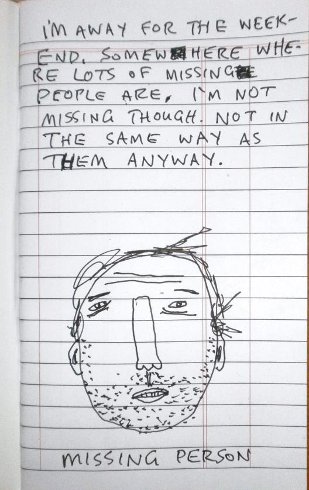 I'M AWAY FOR THE WEEK-
END. SOMEWHERE WHE-
RE LOTS OF MISSING
PEOPLE ARE, I'M NOT
MISSING THOUGH. NOT IN
THE SAME WAY AS
THEM ANYWAY.
MISSING PERSON